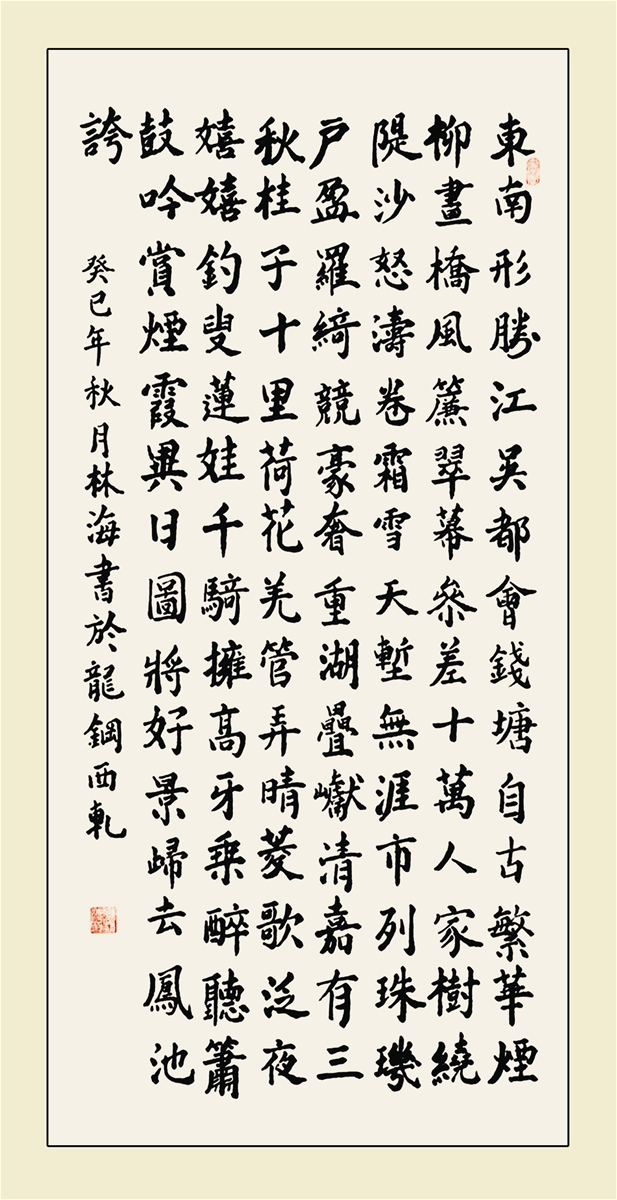 東南形勝江吳都會錢塘自古繁華煙
柳畫橋風簾翠幕參差十萬人家樹繞
隄沙怒濤卷霜雪天塹無涯市列珠璣
戶盈羅綺競豪奢重湖疊巘清嘉有三
秋桂子十里荷花羌管弄晴菱歌泛夜
嬉嬉釣叟蓮娃千騎擁高牙乘醉聽簫
鼓吟賞煙霞異日圖將好景歸去鳳池
誇
癸巳年秋月林海書於龍鋼西